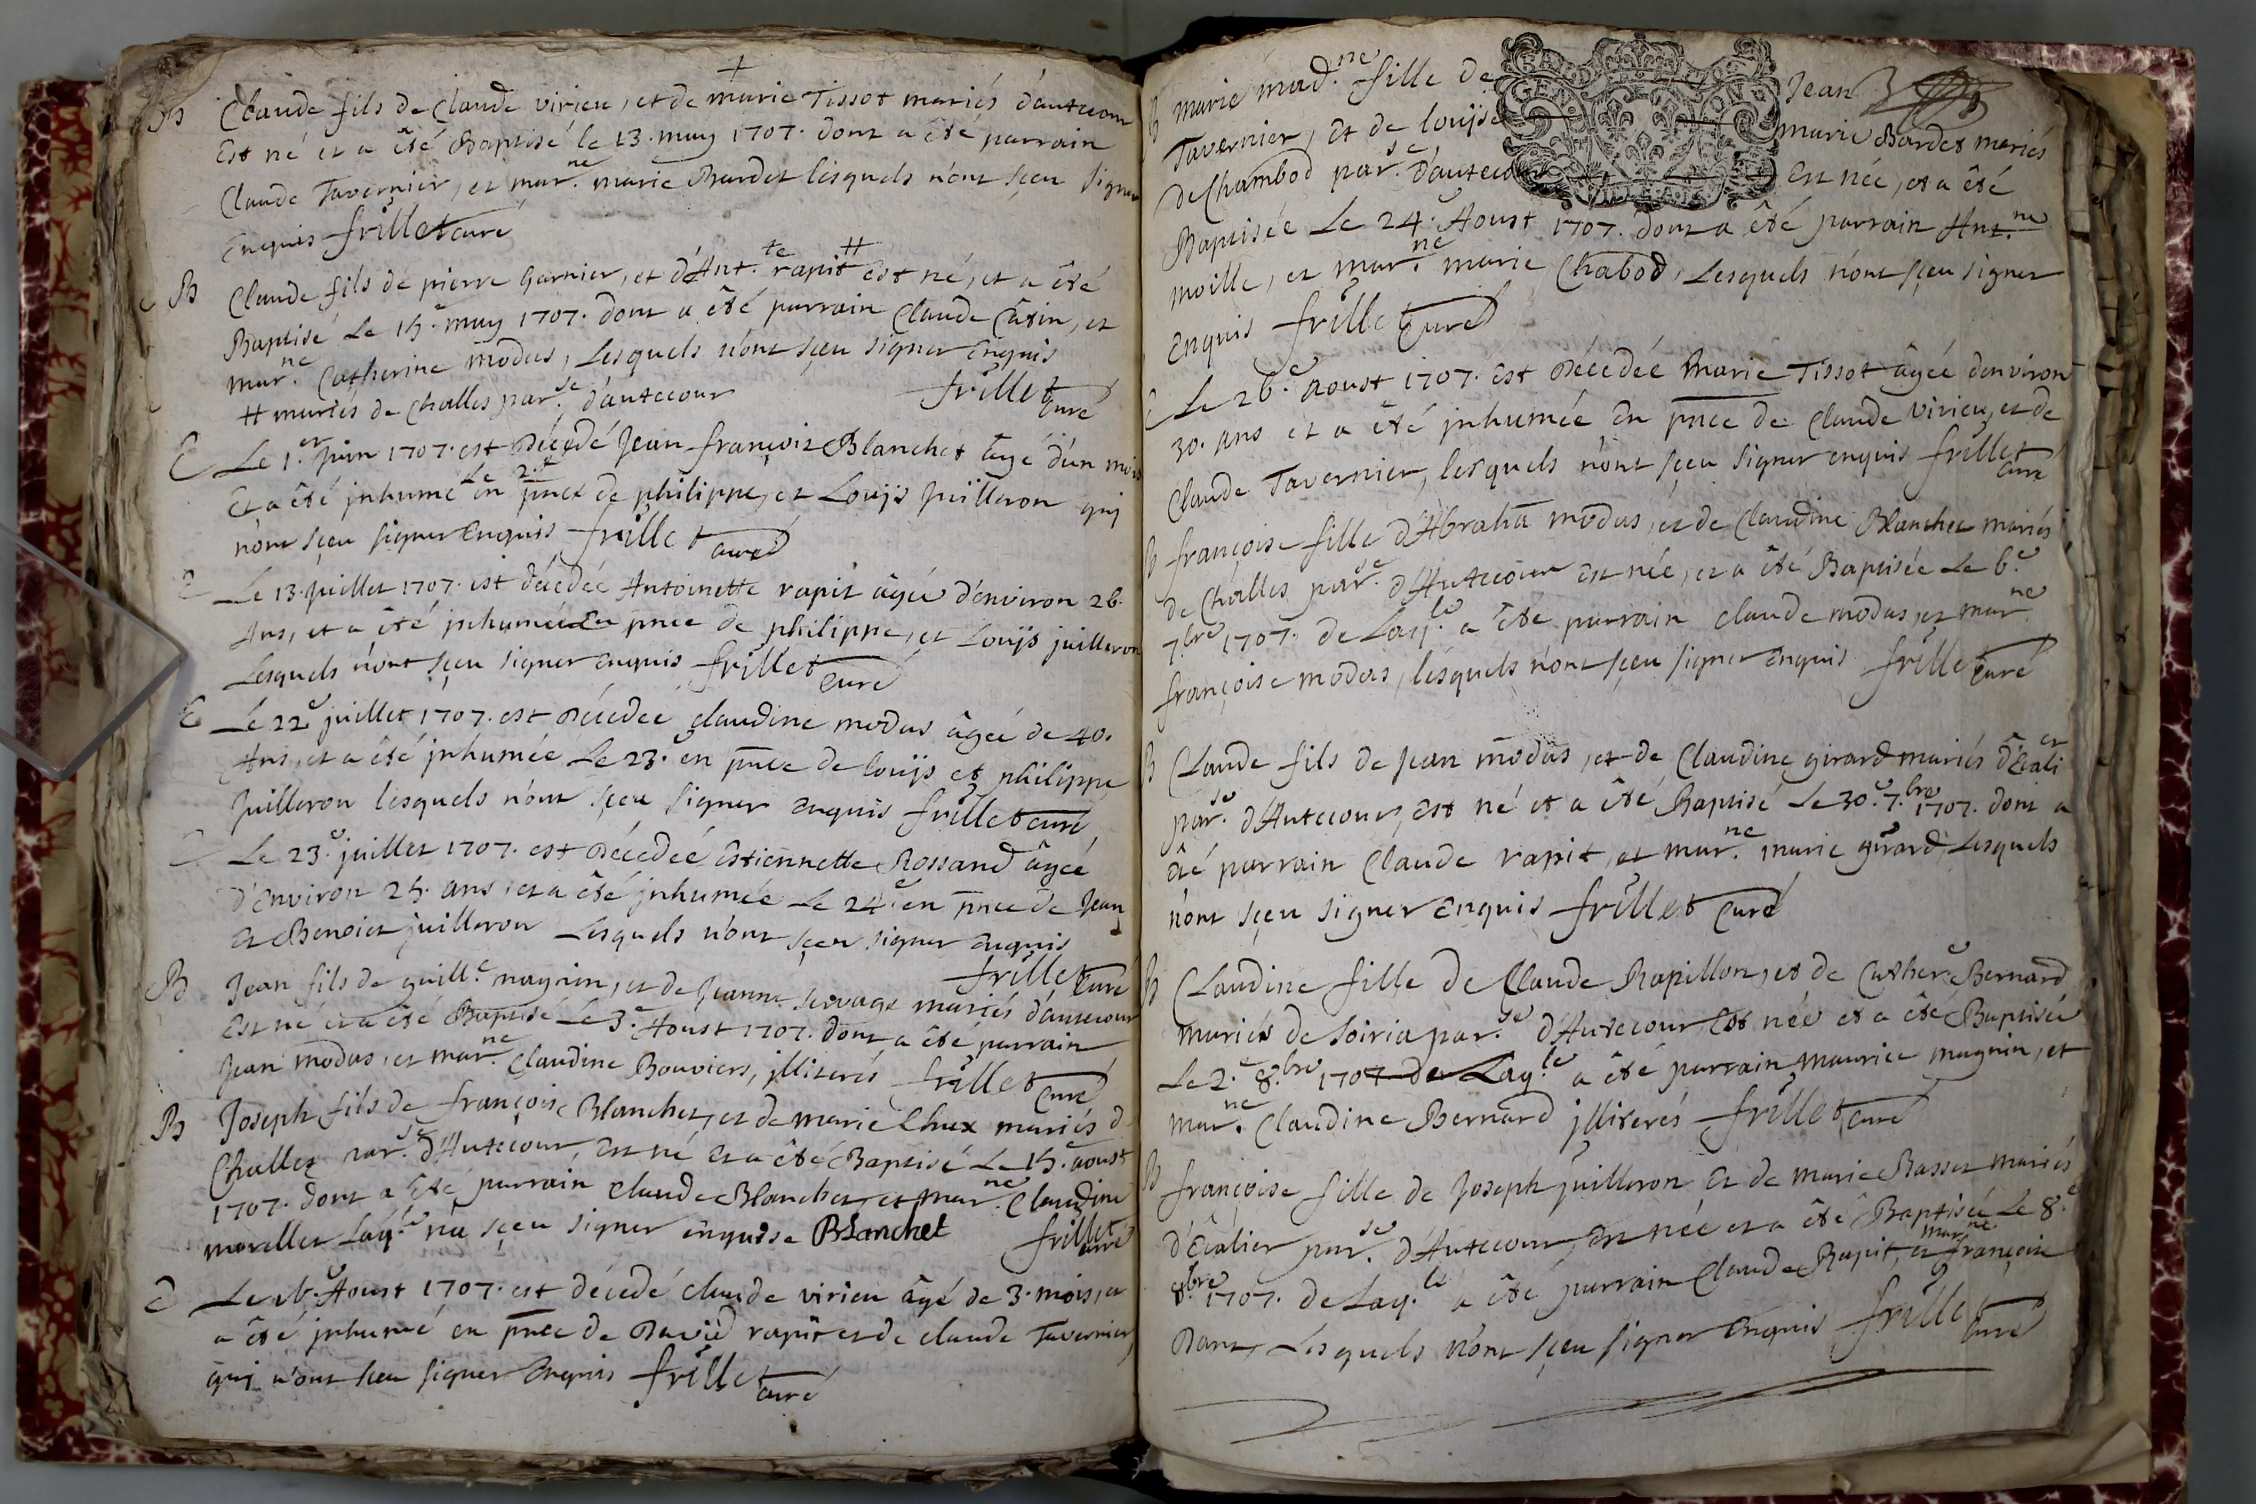 +
B Claude fils de Claude virieu, et de marie Tissot mariés d'autecour
Est né et a êté Baptisé le 13. may 1707. dont a êté parrain
Claude Tavernier, et mar.ne marie Bardet lesquels n'ont sçeu signer
Enquis frillet curé
B Claude fils de pierre Garnier, et d'Ant.te rapit # Est né, et a êté
Baptisé Le 15.e may 1707. dont a êté parrain Claude Câtin, et
mar.ne Catherine modas, Lesquels n'ont sçeu signer Enquis
# mariés de Challes par.se d'autecour frillet curé
E Le 1.er Juin 1707. est Décedé Jean françois Blanchet âgé d'un mois
Et a êté jnhumé Le 2.e en pnce de philippe, et Louijs Juilleron quj
n'ont sçeu signer Enquis frillet curé
E Le 13. juillet 1707. est décedée Antoinette rapit âgée d'environ 26.
Ans, et a êté jnhumée En pnce de philippe, et Louijs juilleron
Lesquels n'ont sçeu signer enquis frillet curé
E Le 22.e juillet 1707. est Décedée claudine modas âgée de 40.
Ans, et a êté jnhumée Le 23.e en pnce de louijs et philippe
Juilleron lesquels n'ont sçeu signer enquis frillet curé
E Le 23.e juillet 1707. est Décedée Estiennette Rossand âgée
d'Environ 25. ans, et a êté jnhumée Le 24.e en pnce de Jean
Et Benoict juilleron Lesquels n'ont sçeu signer enquis
frillet curé
B Jean fils de guill.e magnin, et de Jeanne servage mariés d'autecour
Est né et a êté Baptisé Le 3.e Aoust 1707. dont a êté parrain
Jean modas, et mar.ne Claudine Bouviers, jlliterés frillet curé
B Joseph fils de françois Blanchet, et de marie Chux mariés d
Challes par.se d'Autecour, Est né Et a êté Baptisé Le 15.e aoust
1707. dont a êté parrain Claude Blanchet et mar.ne Claudine
morellet Laq.le n'a sçeu signer enquise Blanchet frillet curé
E Le 16.e Aoust 1707. est décedé claude virieu âgé de 3. mois, et
a êté jnhumé en pnce de David rapit et de claude Tavernier,
quj n'ont sçeu signer Enquis frillet curé
B marie mad.ne fille de Jean
Tavernier, Et de louijse marie Bardet mariés
de Chambod par.se d'autecour Est née, et a êté
Baptisée Le 24.e Aoust 1707. dont a êté parrain Ant.ne
moille, et mar.ne marie Chabod, Lesquels n'ont sçeu signer
enquis frillet curé
E Le 26.e aoust 1707. Est Décedée Marie Tissot âgée d'environ
30. ans et a êté jnhumée En pnce de Claude virieu, et de
Claude Tavernier, lesquels n'ont sçeu signer enquis frillet curé
B françoise fille d'Abrahã modas, et de Claudine Blanchet mariés
de Challes par.se d'Autecour est née, et a êté Baptisée Le 6.e
7.bre 1707. de Laq.le a êté parrain claude modas, et mar.ne
françoise modas, lesquels n'ont sçeu signer enquis frillet curé
B Claude fils de Jean modas, et de Claudine girard mariés d'Evali er
par.se d'Autecour, Est né et a êté Baptisé Le 30.e 7.bre 1707. dont a
êté parrain Claude rapit, et mar.ne marie girard, Lesquels
n'ont sçeu signer enquis frillet curé
B Claudine fille de Claude Rapillon, et de Cather.e Bernard
mariés de Soiria par.se d'Autecour Est née et a êté Baptisée
Le 2.e 8.bre 1707 de Laq.le a êté parrain maurice magnin, et
mar.ne Claudine Bernard jlliterés frillet curé
B françoise fille de Joseph juilleron Et de marie Basset mariés
d'Evalier par.se d'Autecour, Est née et a êté Baptisée Le 8.e
8.bre 1707. de Laq.le a êté parrain Claude Rapit, et mar.ne françoise
Dant, Lesquels n'ont sçeu signer Enquis frillet curé